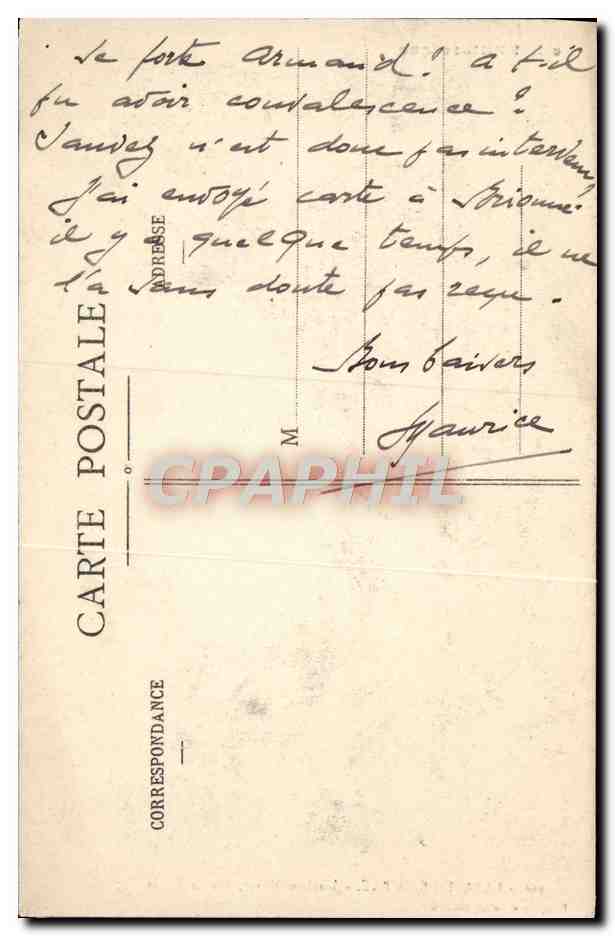 se porte Armand? a t-il
pu avoir convalescence?
n'est donc pas intervenu
J'ai envoyé carte à
il y a quelque temps, il ne
l'a sans doute pas reçu.
Bons baisers
Maurice
CARTE POSTALE
ADRESSE
M
CORRESPONDANCE
CPAPHIL